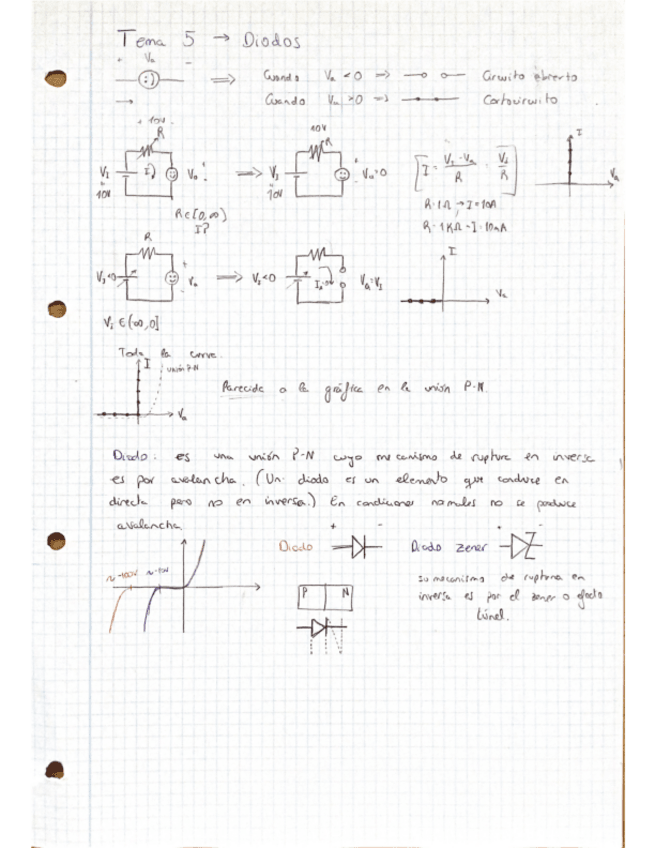 Tema 5 → Diodos
+ Va -
⇒ Cuando Va < 0 ⇒ Circuito abierto
→ Cuando Va > 0 ⇒ Cortocircuito
+ 10V - 10V
R R I
V1 I Va ⇒ V1 Va=0 [I = (V1 - Va)/R = V1/R] Va
10V 10V
R∈[0,∞) R=1Ω → I=10A
I? R=1KΩ → I=10mA
R I
V1<0 Va ⇒ V1<0 Va=V1 Va
V1 ∈(-∞,0]
Toda la curva.
I unión P-N
Parecida a la gráfica en la unión P-N.
Va
Diodo: es una unión P-N cuyo mecanismo de ruptura en inversa
es por avalancha. (Un diodo es un elemento que conduce en
directa pero no en inversa.) En condiciones normales no se produce
avalancha.
Diodo + - Diodo zener + -
~-100V ~-10V
P N
su mecanismo de ruptura en
inversa es por el zener o efecto
túnel.